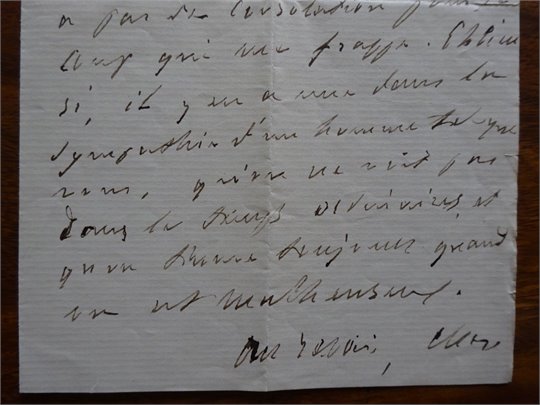 a pas de consolation pour le
coup qui me frappe. Eh bien
si, il y en a une dans la
sympathie d'un homme tel que
vous, qu'on ne voit pas
dans les temps ordinaires, et
qu'on trouve toujours quand
on est malheureux.
au revoir, cher